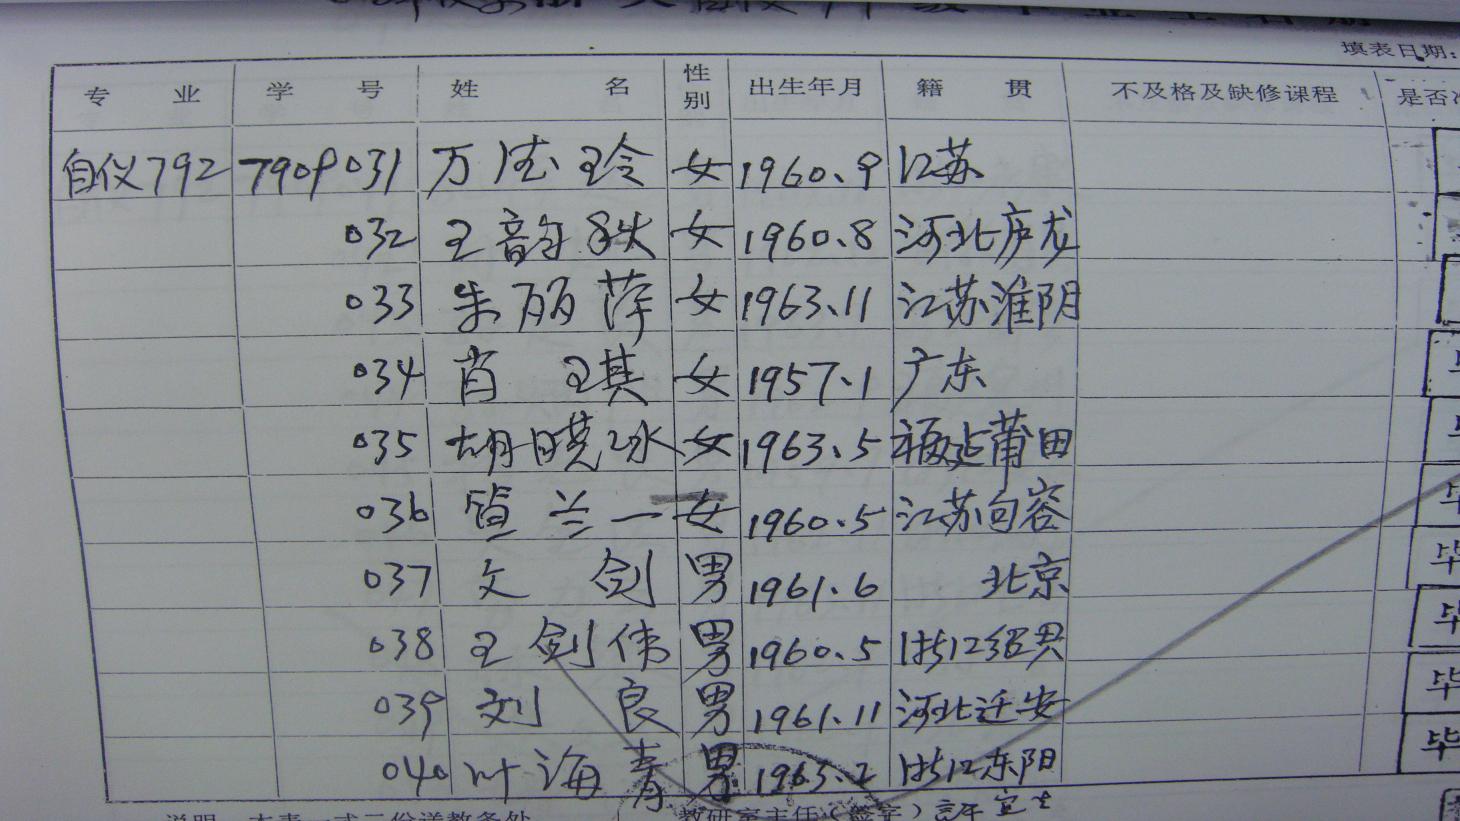 填表日期:
专 业 学 号 姓 名 性别 出生年月 籍 贯 不及格及缺修课程 是否
自仪792 7909031 万德玲 女 1960.9 江苏
032 王韵秋 女 1960.8 河北庐龙
033 朱丽萍 女 1963.11 江苏淮阴
034 肖 琪 女 1957.1 广东
035 胡晓冰 女 1963.5 福建莆田
036 笪兰一 女 1960.5 江苏句容
037 文 剑 男 1961.6 北京
038 王剑伟 男 1960.5 浙江绍兴 毕
039 刘 良 男 1961.11 河北迁安 毕
040 叶海青 男 1963.2 浙江东阳 毕
说明 本表一式二份送教务处 教研室主任(签字)